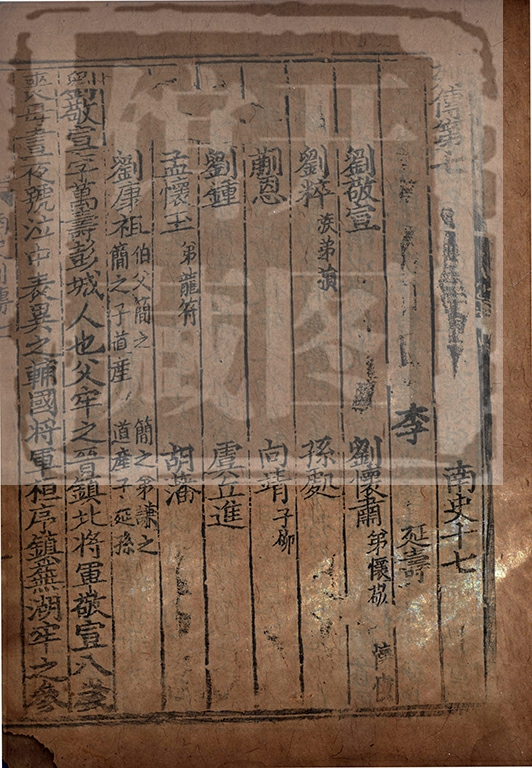 列傳第七 南史十七
李 延壽
劉敬宣 劉懷肅 弟懷敬 懷慎
劉粹 族弟損 孫處
蒯恩 向靖 子柳
劉鍾 虞丘進
孟懷玉 弟龍符 胡藩
劉康祖 伯父簡之 簡之弟謙之 簡之子道產 道產子延孫
劉敬宣字萬壽彭城人也父牢之晉鎮北將軍敬宣八歲
喪母晝夜號泣中表異之輔國將軍桓序鎮蕪湖牢之參